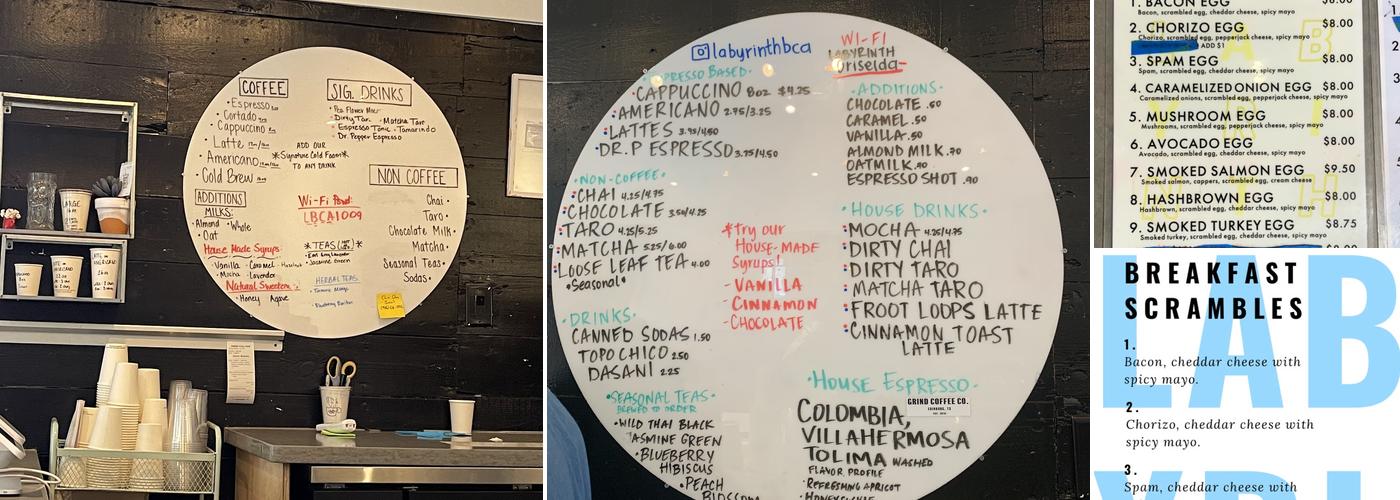 COFFEE
• Espresso
• Cortado
• Cappuccino
• Latte
• Americano
• Cold Brew
SIG. DRINKS
• Pea Flower
• Dirty Tar • Matcha Taro
• Espresso Tonic • Tamarindo
• Dr. Pepper Espresso
ADD OUR
*Signature Cold Foam*
TO ANY DRINK
NON COFFEE
Chai •
Taro •
Chocolate Milk •
Matcha •
Seasonal Teas •
Sodas •
ADDITIONS
MILKS:
Almond • Whole
Oat
House Made Syrups:
• Vanilla • Caramel
• Mocha • Lavender
Natural
• Honey Agave
Wi-Fi
LBCA1009
*TEAS*
HERBAL TEAS
@labyrinthbca
WI-FI
LABYRINTH
Griselda
ESPRESSO BASED•
• CAPPUCCINO 8oz $4.25
• AMERICANO 2.75/3.25
• LATTES 3.95/4.50
• DR.P ESPRESSO 3.75/4.50
• NON-COFFEE•
• CHAI 4.25/4.75
• CHOCOLATE 3.50/4.25
• TARO 4.25/5.25
• MATCHA 5.25/6.00
• LOOSE LEAF TEA 4.00
• Seasonal•
• DRINKS•
CANNED SODAS 1.50
TOPO CHICO 2.50
DASANI 2.25
• SEASONAL TEAS•
BREWED TO ORDER
• WILD THAI BLACK
JASMINE GREEN
• BLUEBERRY
HIBISCUS
• PEACH
BLOSSOM
*Try our
HOUSE-MADE
Syrups!
- VANILLA
- CINNAMON
- CHOCOLATE
• ADDITIONS•
CHOCOLATE .50
CARAMEL .50
VANILLA .50
ALMOND MILK .70
OATMILK .90
ESPRESSO SHOT .90
• HOUSE DRINKS•
• MOCHA 4.25/4.75
• DIRTY CHAI
• DIRTY TARO
• MATCHA TARO
• FROOT LOOPS LATTE
• CINNAMON TOAST
LATTE
• House Espresso•
GRIND COFFEE CO.
EDINBURG, TX
COLOMBIA,
VILLAHERMOSA
TOLIMA WASHED
FLAVOR PROFILE
• REFRESHING APRICOT
• HONEYSUCKLE
1. BACON EGG $8.00
Bacon, scrambled egg, cheddar cheese, spicy mayo
2. CHORIZO EGG $8.00
Chorizo, scrambled egg, pepperjack cheese, spicy mayo
ADD $1
3. SPAM EGG $8.00
Spam, scrambled egg, cheddar cheese, spicy mayo
4. CARAMELIZED ONION EGG $8.00
Caramelized onions, scrambled egg, pepperjack cheese, spicy mayo
5. MUSHROOM EGG $8.00
Mushrooms, scrambled egg, pepperjack cheese, spicy mayo
6. AVOCADO EGG $8.00
Avocado, scrambled egg, cheddar cheese, spicy mayo
7. SMOKED SALMON EGG $9.50
Smoked salmon, cappers, scrambled egg, cream cheese
8. HASHBROWN EGG $8.00
Hashbrown, scrambled egg, cheddar cheese, spicy mayo
9. SMOKED TURKEY EGG $8.75
Smoked turkey, scrambled egg, cheddar cheese, spicy mayo
LAB
BREAKFAST
SCRAMBLES
1.
Bacon, cheddar cheese with
spicy mayo.
2.
Chorizo, cheddar cheese with
spicy mayo.
3.
Spam, cheddar cheese with